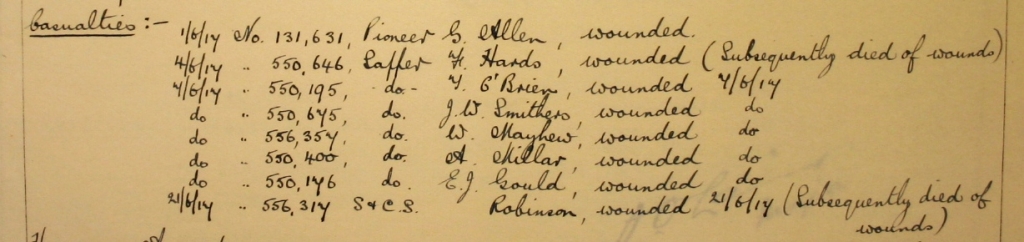 Casualties :- 1/6/17 No. 131,631, Pioneer G. Allen, wounded.
4/6/17 " 550,646, Sapper F. Hards, wounded (Subsequently died of wounds)
7/6/17 " 550,195, -do- F. O'Brien, wounded 7/6/17
do " 550,675, do. J.W. Smithers, wounded do
do " 556,357, do. W. Mayhew, wounded do
do " 550,400, do. A. Millar, wounded do
do " 550,176 do. E.J. Gould, wounded do
21/6/17 " 556,317 S & C.S. Robinson, wounded 21/6/17 (Subsequently died of
wounds)